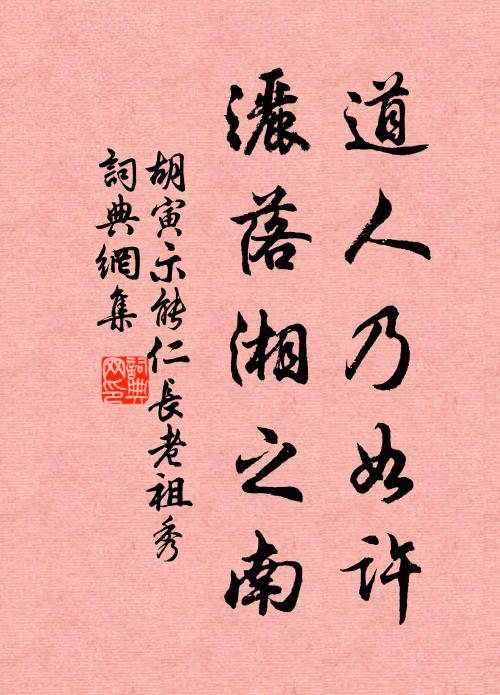 道人乃如許
灑落湘之南
胡寅示能仁長老祖秀
詞典網集
詞典网印